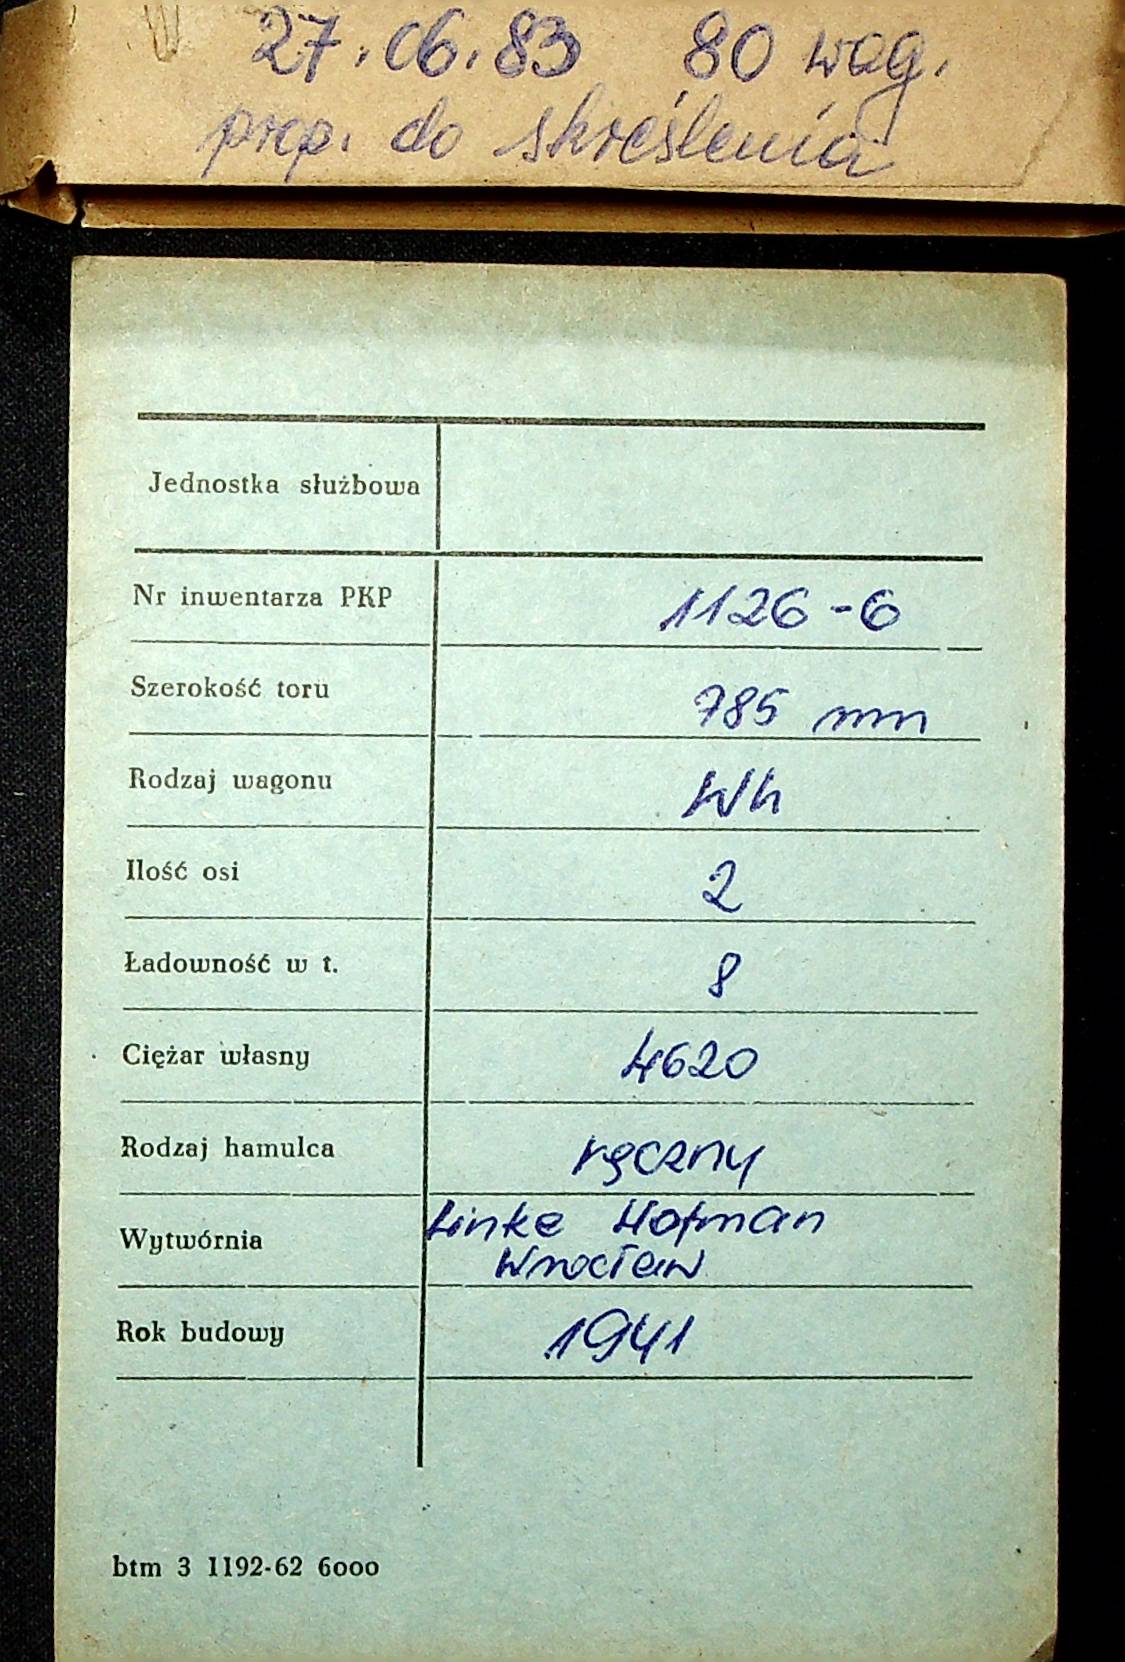 27.06.83 80 wag.
prop. do skreślenia
Jednostka służbowa
Nr inwentarza PKP 1126-6
Szerokość toru 785 mm
Rodzaj wagonu Wh
Ilość osi 2
Ładowność w t. 8
Ciężar własny 4620
Rodzaj hamulca ręczny
Wytwórnia Linke Hofman
Wrocław
Rok budowy 1941
btm 3 1192-62 6000